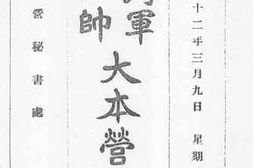 十二年三月九日　星期
海軍
大本營
帥
營秘書處